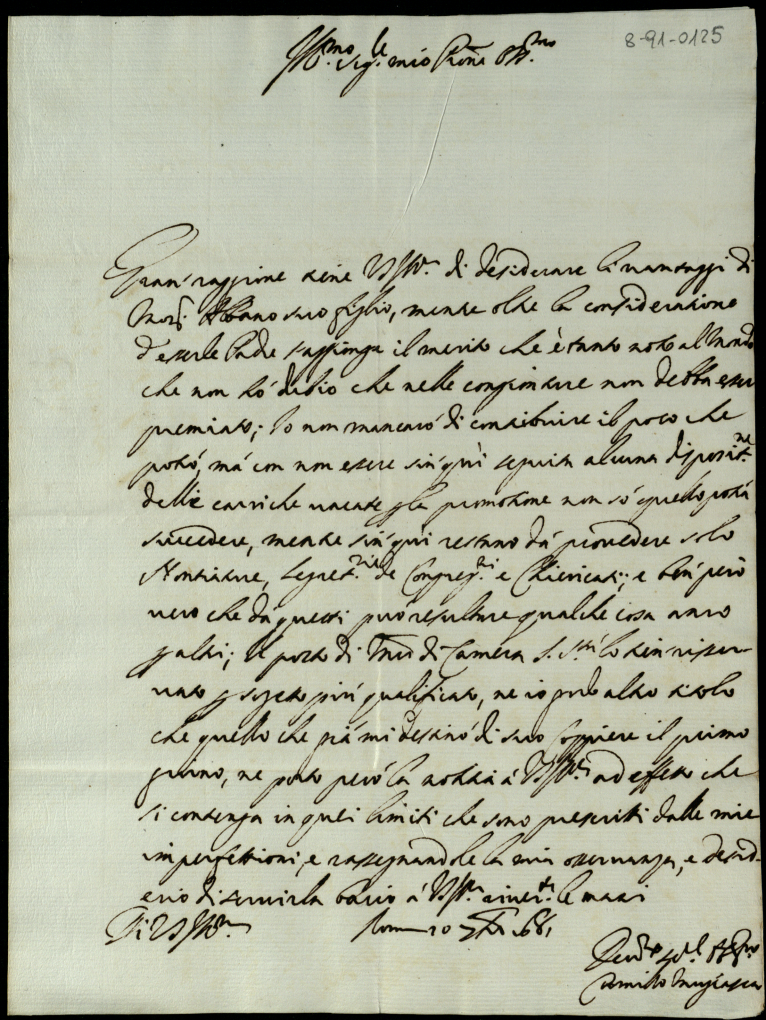 8-91-0125
Ill.mo Sig.re mio P̃rone Oss.mo
Gran raggione tiene VS Ill.ma di desiderare li vantaggi di
Mons.r suo figlio, mentre oltre la consideratione
d'esserle Padre s'aggionge il merito che è tanto noto al Mondo
che non hò dubio che nelle congionture non debba esser
premiato; Io non mancarò di contribuire il poco che
potrò, mà con non essere sin qui seguita alcuna disposit.ne
delle cariche vacate p la promotione non sò quello potrà
succedere, mentre sin qui restano dà provedere solo
Nontiature, Segret.rie de Congreg.ni e Chiericati; e ben però
vero che dà questi può resultare qualche cosa anco
p altri; il posto di di Camera S. S.tà lo tien riser-
vato p sogetto più qualificato, ne io godo altro titolo
che quello che già mi destinò di suo Coppiere il primo
giorno, ne porto però la notitia à VS Ill.ma ad effetto che
si contenga in quei limiti che sono prescritti dalle mie
imperfettioni, e rassegnandole la mia osservanza, e desid-
erio di servirla bacio à VS Ill.ma river.te le mani
Di VS Ill.ma Roma 10
Camillo